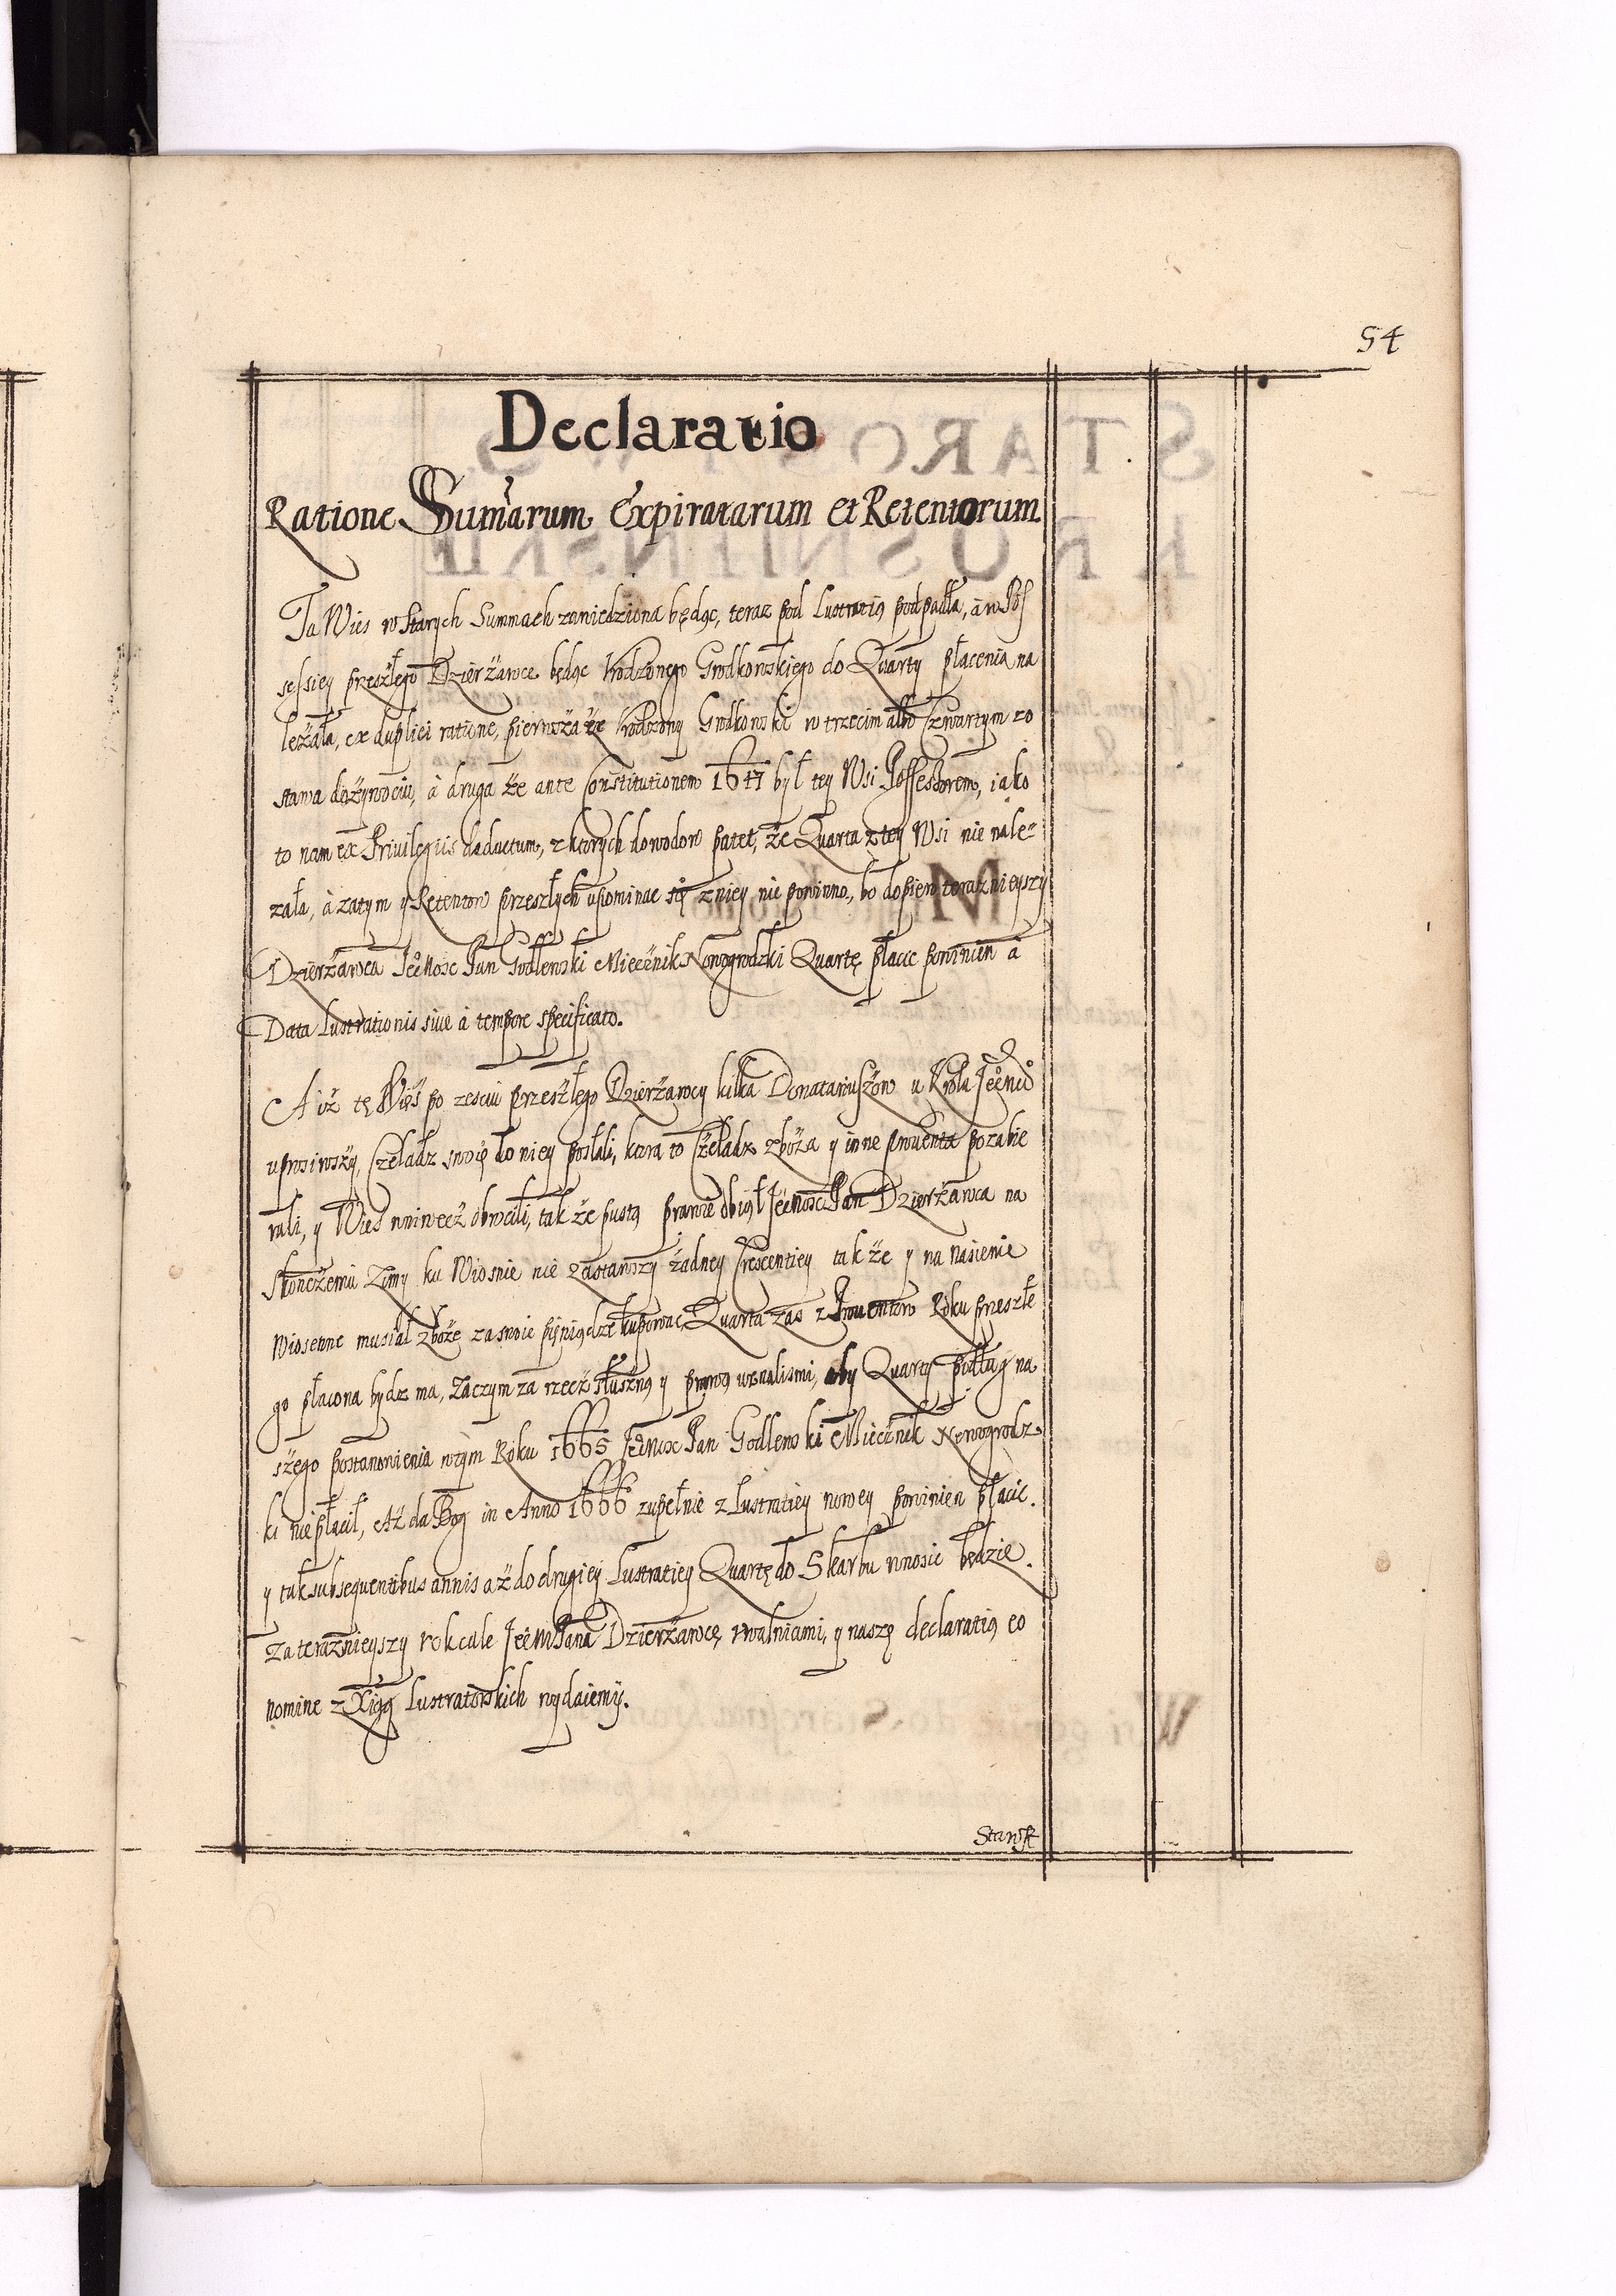 54
Declaratio
Ratione Sum̃arum Expiratarum et Retentorum
Ta Wies w starych Summach zawiedziona będąc, teraz pod Lustratią podpadła, à w Pos
sessiey przeszłego Dzierżawce będąc Urodzonego Grodkowskiego do Quarty płacenia na
leżała, ex duplici ratione, pierwsza że Urodzony Grodkowski w trzecim albo Czwartym zo
stawa dożywociu, à druga że ante Constitutionem 1647 był tey Wsi Possessorem, iako
to nam ex Privilegiis deductum, z ktorych dowodow patet, że Quarta z tey Wsi nie nale⸗
zała, à zatym y Retentow przeszłych upominac się z niey nie powinno, bo dopiero teraznieyszy
Dzierżawca Jeº Mosc Pan Godlewski Miecznik Nowogrodzki Quartę płacic powinien à
Data Lustrationis siue à tempore specificato.
A iż tę Wieś po zesciu przeszłego Dzierżawcy kilka Donatariuszow u Krola Jeº Mci
uprosiwszy, Czeladz swoię do niey posłali, ktora to Czeladz zboża y inne prouenta pozabie
rali, y Wies wniwecz obrocili, tak że pustą prawie obiął Jeº Mosc Pan Dzierżawca na
Skonczeniu Zimy ku Wiosnie nie zastawszy żadney Crescentiey tak że y na nasienie
Wiosenne musiał zboże za swoie pieniądze kupowac, Quarta zas z Prouentow Roku przeszłe
go płacona bydz ma, Zaczym za rzecz słuszną y prawą uznalismi, aby Quarty podług na
szego postanowienia w tym Roku 1665 Jeº Mosc Pan Godlewski Miecznik Nowogrodz
ki nie płacił, Aż da Bog in Anno 1666 zupełnie z Lustratiey nowey powinien płacic.
y tak subsequentibus annis aż do drugiey Lustratiey Quartę do Skarbu wnosic będzie.
Za teraznieyszy rok cale Jeº M Pana Dzierżawcę uwalniami, y naszę declaratią eo
nomine z Xiąg Lustratorskich wydaiemy.